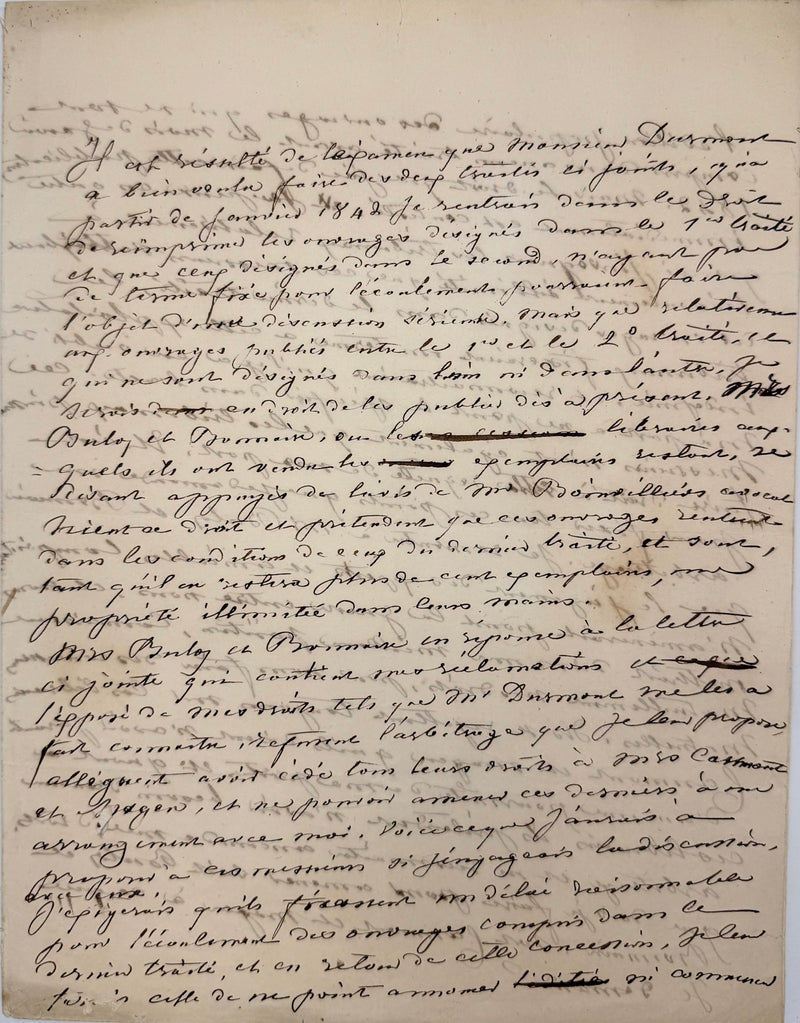 Il est résulté de l'éxamen que Monsieur Durmont
a bien voulu faire des deux traités ci joints, qu'a
partir de Janvier 1842 je rentrais dans le droit
de réimprimer les ouvrages désignés dans le 1er traité
et que ceux désignés dans le second, n'ayant pas
de terme fixé pour l'écoulement, pourraient faire
l'objet d'une discussion sérieuse. Mais que relativement
aux ouvrages publiés entre le 1er et le 2º traité, et
qui ne sont désignés dans l'un ni dans l'autre, je
serais en droit de les publier dès à présent. Mrs
Buloz et Bonnaire, ou les libraires aux-
=quels ils ont vendu les exemplaires restant, se
disant appuyés de l'avis de Mr Boinvilliers avocat
nient ce droit et prétendent que ces ouvrages rentrent
dans les conditions de ceux du dernier traité, et sont,
tant qu'il en restera plus de cent exemplaires, une
propriété illimitée dans leurs mains.
Mrs Buloz et Bonnaire en réponse à la lettre
ci jointe qui contient mes réclamations et
l'exposé de mes droits tels que Mr Durmont me les a
fait connaitre, refusent l'arbitrage que je leur propose,
allèguent avoir cédé tous leurs droits à Mrs
et Magen, et ne pouvoir amener ces derniers à un
arrangement avec moi. Voici ce que j'aurais à
proposer à ces messieurs si j'engageais la discussion
avec eux.
J'exigerais qu'ils fixassent un délai raisonnable
pour l'écoulement des ouvrages compris dans le
dernier traité, et en retour de cette concession, je leur
celle de ne point annoncer ni commencer